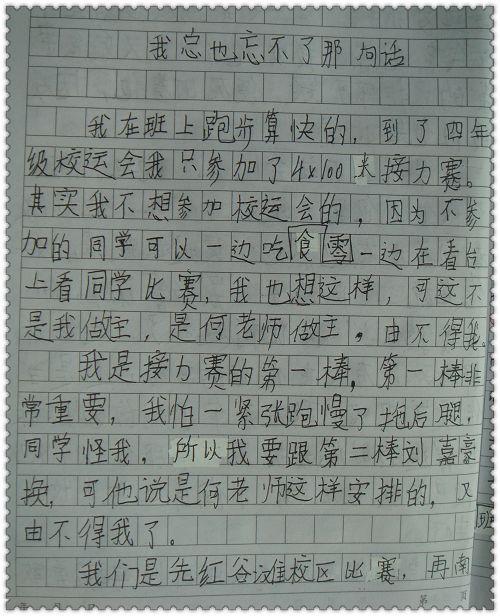 我总也忘不了那句话
我在班上跑步算快的，到了四年
级校运会我只参加了4x100米接力赛。
其实我不想参加校运会的，因为不参
加的同学可以一边吃食零一边在看台
上看同学比赛，我也想这样，可这不
是我做主，是何老师做主，由不得我。
我是接力赛的第一棒，第一棒非
常重要，我怕一紧张跑慢了拖后腿，
同学怪我，所以我要跟第二棒刘嘉豪
换，可他说是何老师这样安排的，又
由不得我了。
我们是先红谷滩校区比赛，再南
第 页